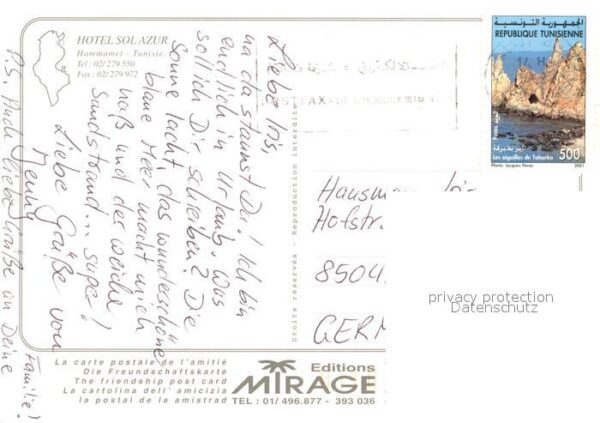 HOTEL SOL AZUR
Hammamet - Tunisie.
Tel : 02/ 279 550
Fax : 02/ 279 972
Liebe Iris,
na da staunst Du! Ich bin
endlich in Urlaub. Was
soll ich Dir schreiben? Die
Sonne lacht, das wunderschöne
blaue Meer macht mich
naß und der weiche
Sandstrand... super!
Liebe Grüße von
Jenny
P.S. Auch liebe Grüße an Deine
Familie!
Droits réservés - Reproduction interdite
الجمهورية التونسية
REPUBLIQUE TUNISIENNE
Les aiguilles de Tabarka
500
2001
Hofstr.
8504
GERM
privacy protection
Datenschutz
La carte postale de l'amitié
Die Freundschaftskarte
The friendship post card
La cartolina dell' amicizia
la postal de la amistrad
Editions
MIRAGE
TEL : 01/ 496.877 - 393 036